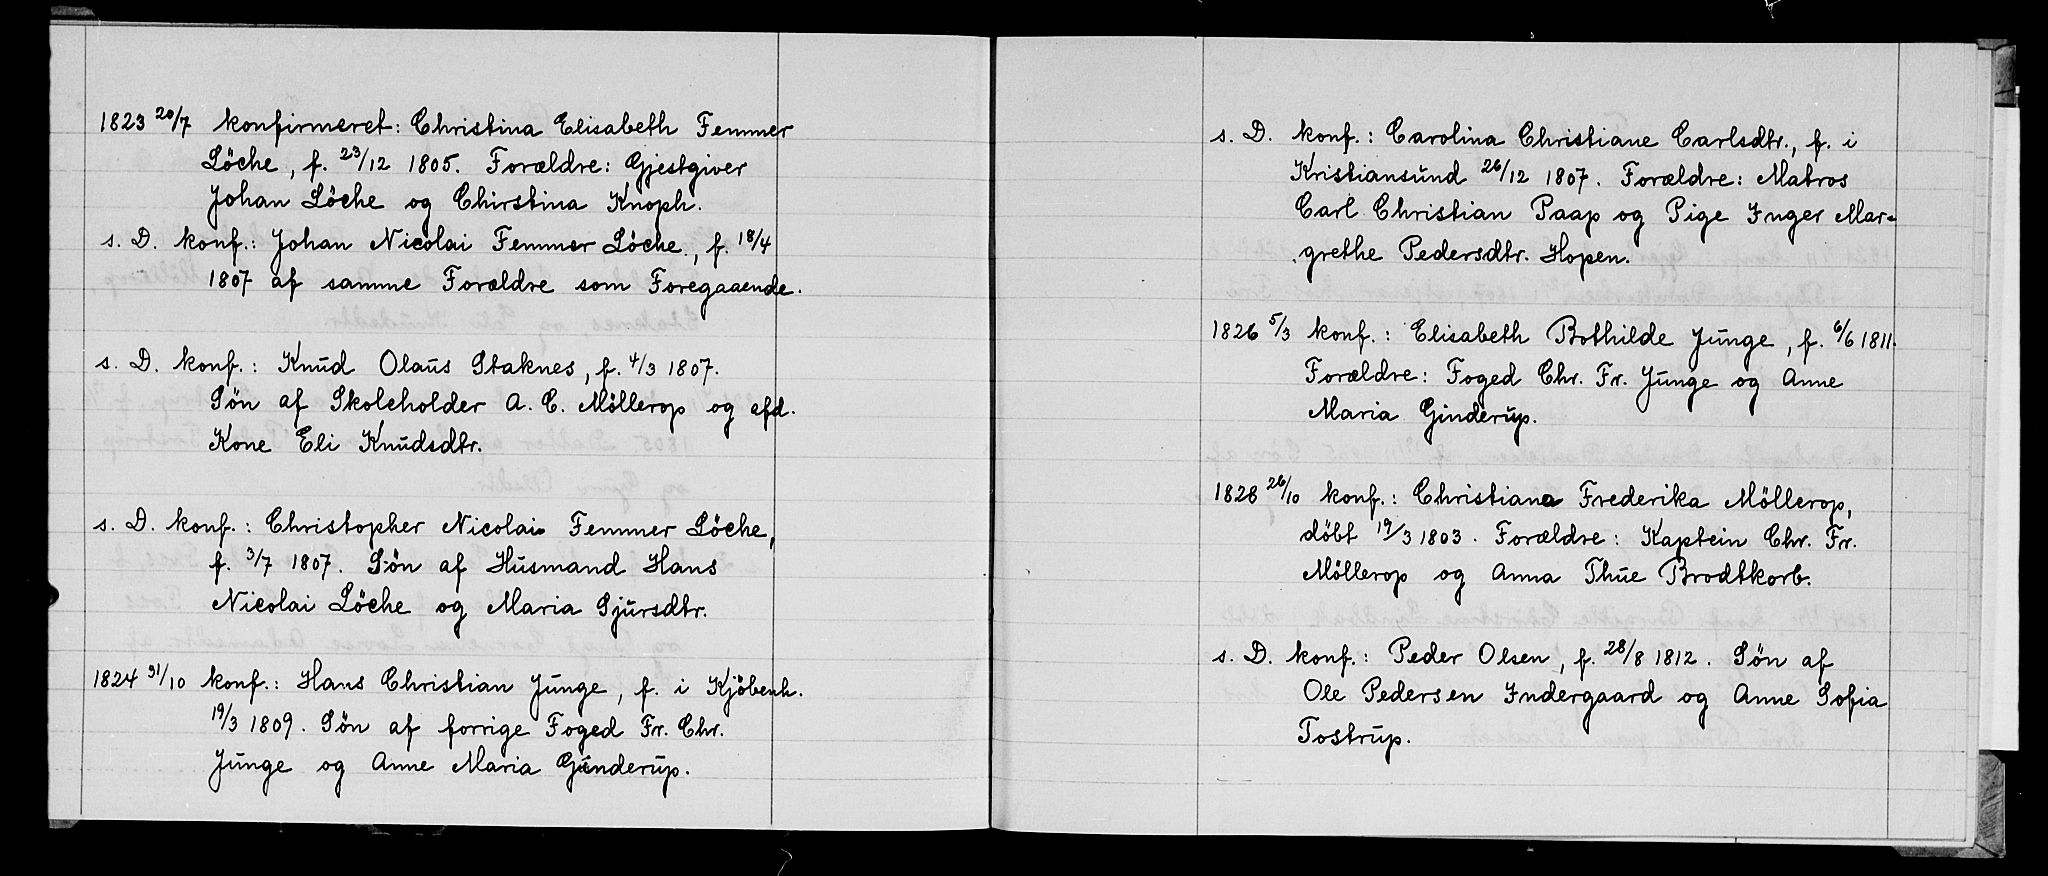 1823 20/7 konfirmeret: Christina Elisabeth Femmer
Löche, f. 23/12 1805. Forældre: Gjestgiver
Johan Löche og Chirstina Knoph.
s. D. konf.: Johan Nicolai Femmer Löche., f. 18/4
1807 af samme Forældre som Foregaaende.
s. D. konf.: Knud Olaus Staknes, f. 4/3 1807.
Sön af Skoleholder A. C. Möllerop og afd.
Kone Eli Knudsdtr.
s. D. konf.: Christopher Nicolai Femmer Löche,
f. 3/7 1807. Sön af Husmand Hans
Nicolai Löche og Maria Sjursdtr.
1824 31/10 konf.: Hans Christian Junge, f. i Kjöbenh.
19/3 1809. Sön af forrige Foged Fr. Chr.
Junge og Anne Maria Ginderup.
s. D. konf.: Carolina Christiane Carlsdtr., f. i
Kristiansund 26/12 1807. Forældre: Matros
Carl Christian Paap og Pige Inger Mar-
grethe Pedersdtr. Hopen.
1826 5/3 konf.: Elisabeth Bothilde Junge, f. 6/6 1811.
Forældre: Foged Chr. Fr. Junge og Anne
Maria Ginderup.
1828 26/10 konf.: Christiana Frederika Möllerop,
döbt 19/3 1803. Forældre: Kaptein Chr. Fr.
Möllerop og Anna Thue Brodtkorb.
s. D. konf.: Peder Olsen, f. 28/8 1812. Sön af
Ole Pedersen Indergaard og Anne Sofia
Tostrup.